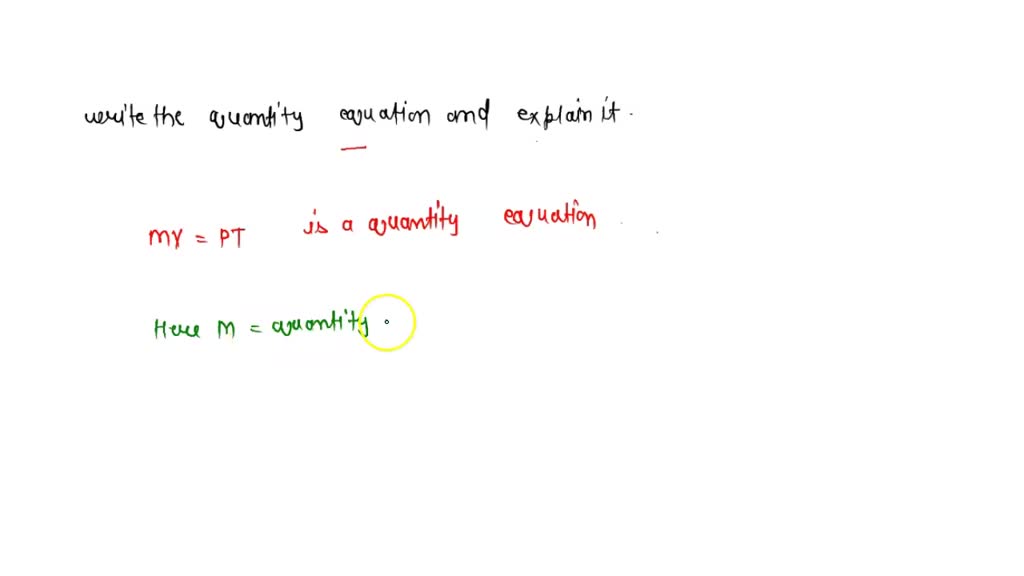 write the quantity equation and explain it.
MV = PT is a quantity equation
Here M = quantity